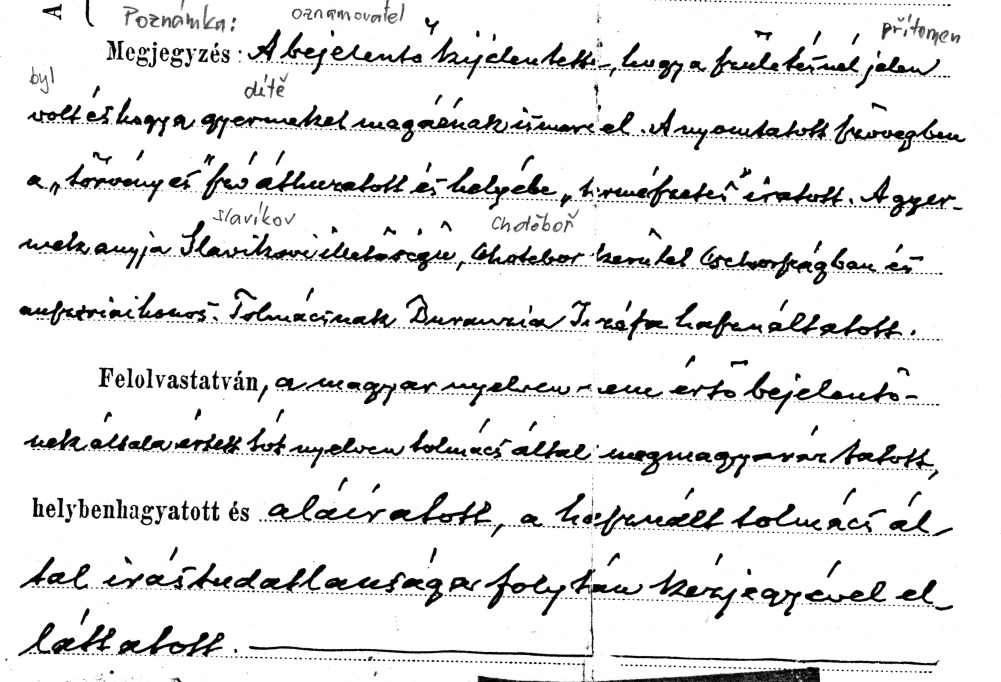 A
Poznámka: oznamovatel přítomen
Megjegyzés: A bejelentő kijelentette, hogy a születésnél jelen
byl dítě
volt és hogy a gyermeket magáénak ismeri el. A nyomtatott szövegben
a „törvényes" szó áthuzatott és helyébe „természetes" iratott. A gyer-
Slavíkov Chotěboř
mek anyja Slavikovi illetőségű, Chotebor kerület Csehországban és
ausztriai honos. Tolmácsnak József használtatott.
Felolvastatván, a magyar nyelven nem értő bejelentő-
nek általa értett tót nyelven tolmács által megmagyaráztatott,
helybenhagyatott és aláiratott, a használt tolmács ál-
tal irástudatlansága folytán kézjegyével el-
láttatott.